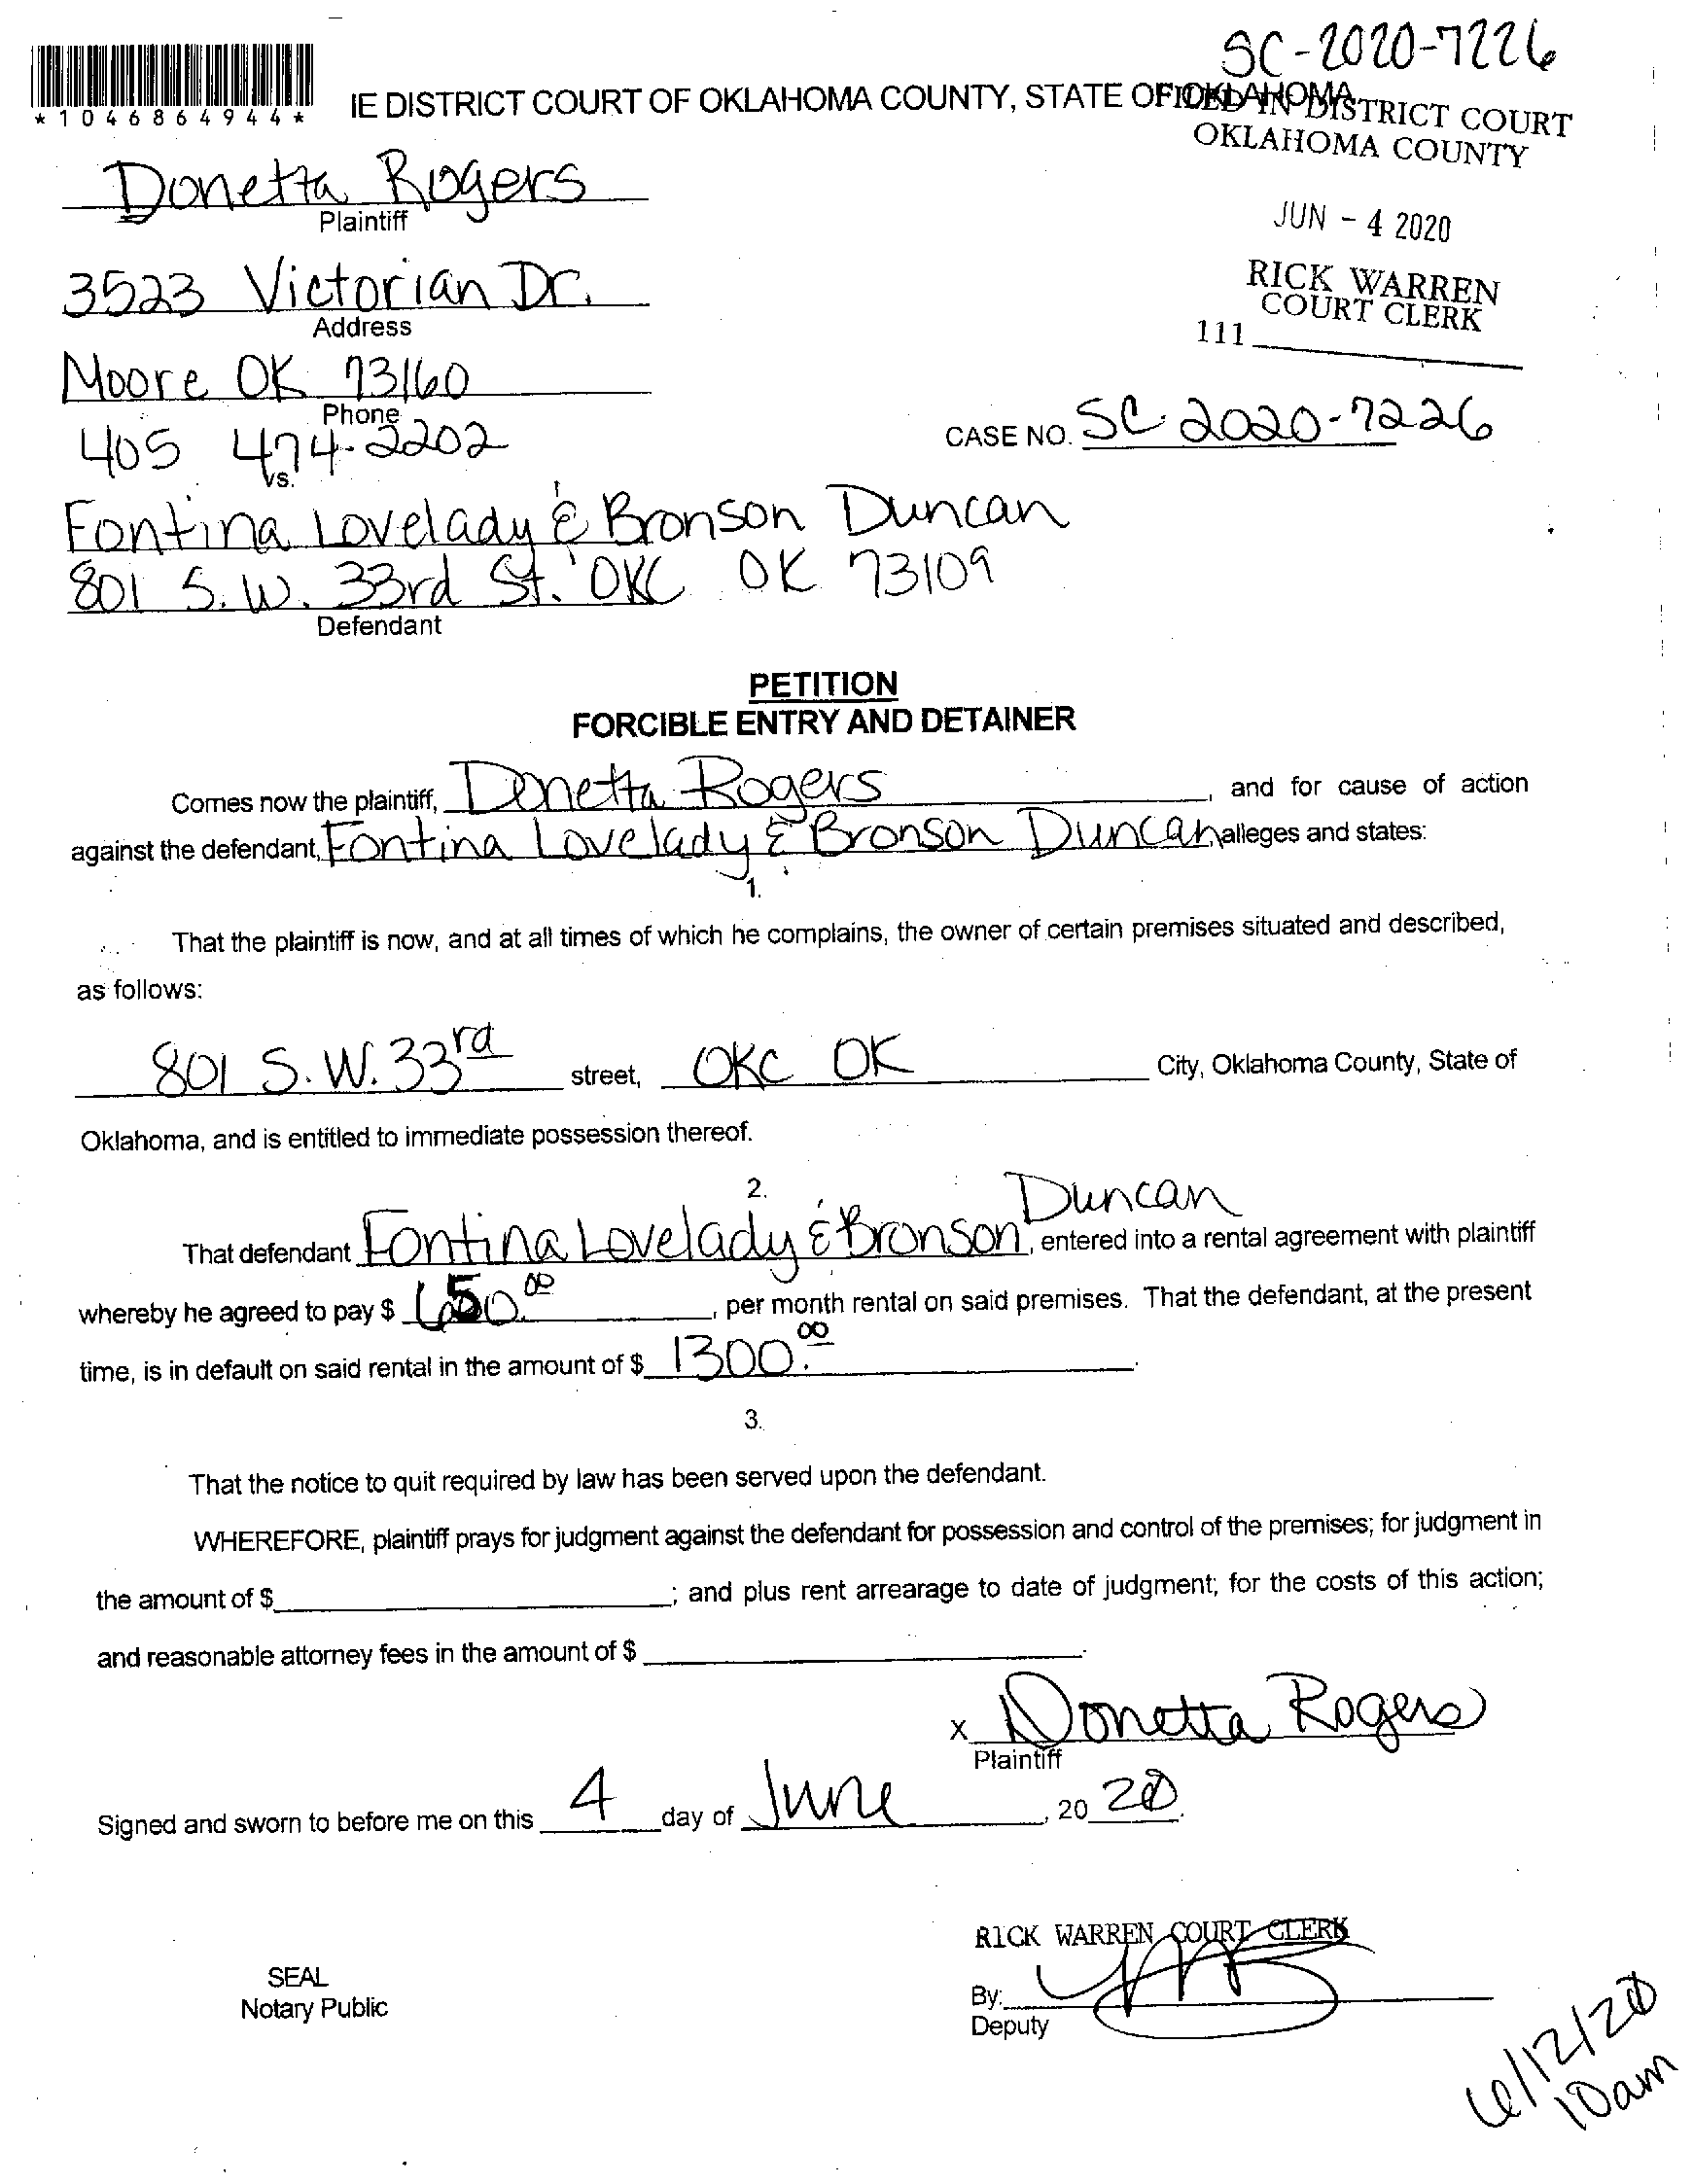 SC-2020-7226
*1046864944*
IE DISTRICT COURT OF OKLAHOMA COUNTY, STATE OF OKLAHOMA
FILED IN DISTRICT COURT
OKLAHOMA COUNTY
Donetta Rogers
Plaintiff
JUN - 4 2020
3523 Victorian Dr.
Address
RICK WARREN
COURT CLERK
111
Moore OK 73160
Phone
405 474-2202
CASE NO. SC-2020-7226
vs.
Fontina Lovelady & Bronson Duncan
801 S.W. 33rd St. OKC OK 73109
Defendant
PETITION
FORCIBLE ENTRY AND DETAINER
Comes now the plaintiff, Donetta Rogers, and for cause of action
against the defendant, Fontina Lovelady & Bronson Duncan alleges and states:
1.
That the plaintiff is now, and at all times of which he complains, the owner of certain premises situated and described,
as follows:
801 S.W. 33rd street, OKC OK City, Oklahoma County, State of
Oklahoma, and is entitled to immediate possession thereof.
2.
That defendant Fontina Lovelady & Bronson Duncan, entered into a rental agreement with plaintiff
whereby he agreed to pay $ 650.00, per month rental on said premises. That the defendant, at the present
time, is in default on said rental in the amount of $ 1300.00.
3.
That the notice to quit required by law has been served upon the defendant.
WHEREFORE, plaintiff prays for judgment against the defendant for possession and control of the premises; for judgment in
the amount of $ ; and plus rent arrearage to date of judgment; for the costs of this action;
and reasonable attorney fees in the amount of $ .
x Donetta Rogers
Plaintiff
Signed and sworn to before me on this 4 day of June, 20 20.
RICK WARREN COURT CLERK
SEAL
Notary Public
By:
Deputy
6/12/20
10am